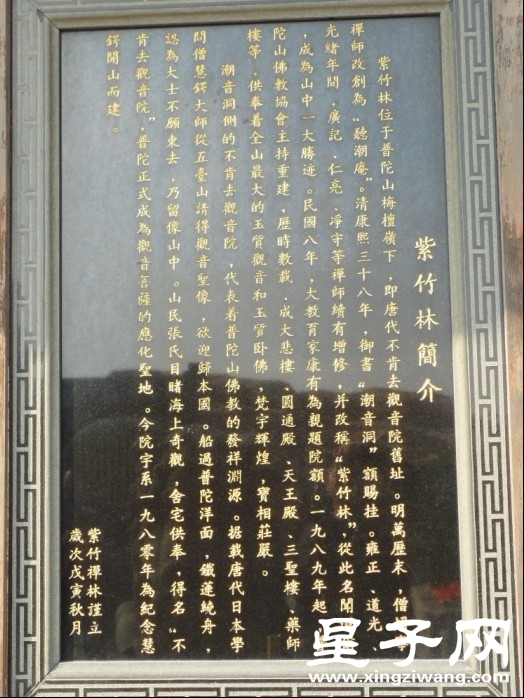 紫竹林簡介
紫竹林位于普陀山梅檀嶺下，即唐代不肯去觀音院舊址。明萬歷末，僧
禪師改創為“聽潮庵”。清康熙三十八年，御書“潮音洞”額賜挂。雍正、道光、
光緒年間，廣記、仁亮、淨守等禪師續有增修，并改稱“紫竹林”，從此名聞
，成為山中一大勝迹。民國八年，大教育家康有為親題院額。一九八九年起
陀山佛教協會主持重建，歷時數載，成大悲樓、圓通殿、天王殿、三聖樓、藥師
樓等，供奉着全山最大的玉質觀音和玉質卧佛，梵宇輝煌，寶相莊嚴。
潮音洞側的不肯去觀音院，代表着普陀山佛教的發祥淵源。据載唐代日本學
問僧慧鍔大師從五臺山請得觀音聖像，欲迎歸本國。船過普陀洋面，鐵蓮繞舟，
認為大士不願東去，乃留像山中。山民張氏目睹海上奇觀，舍宅供奉，得名“不
肯去觀音院”，普陀正式成為觀音菩薩的應化聖地。今院宇系一九八零年為紀念慧
鍔開山而建。
紫竹禪林謹立
歲次戊寅秋月
星子网
www.xingziwang.com